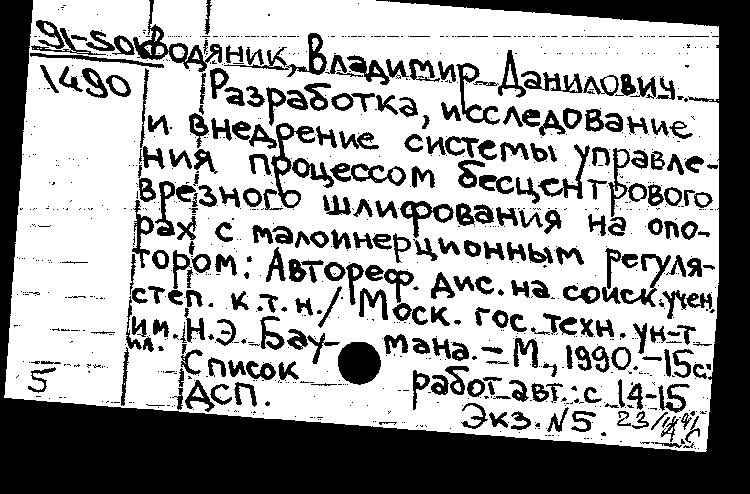 91-50 Водяник, Владимир Данилович.
1490 Разработка, исследование
и внедрение системы управле-
ния процессом бесцентрового
врезного шлифования на опо-
рах с малоинерционным регуля-
тором: Автореф. дис. на соиск. учен.
степ. к.т.н./ Моск. гос. техн. ун-т
им. Н.Э. Баумана. – М., 1990. – 15с:
ил. Список работ авт.: с. 14-15
5 ДСП.
Экз. N5. 23/